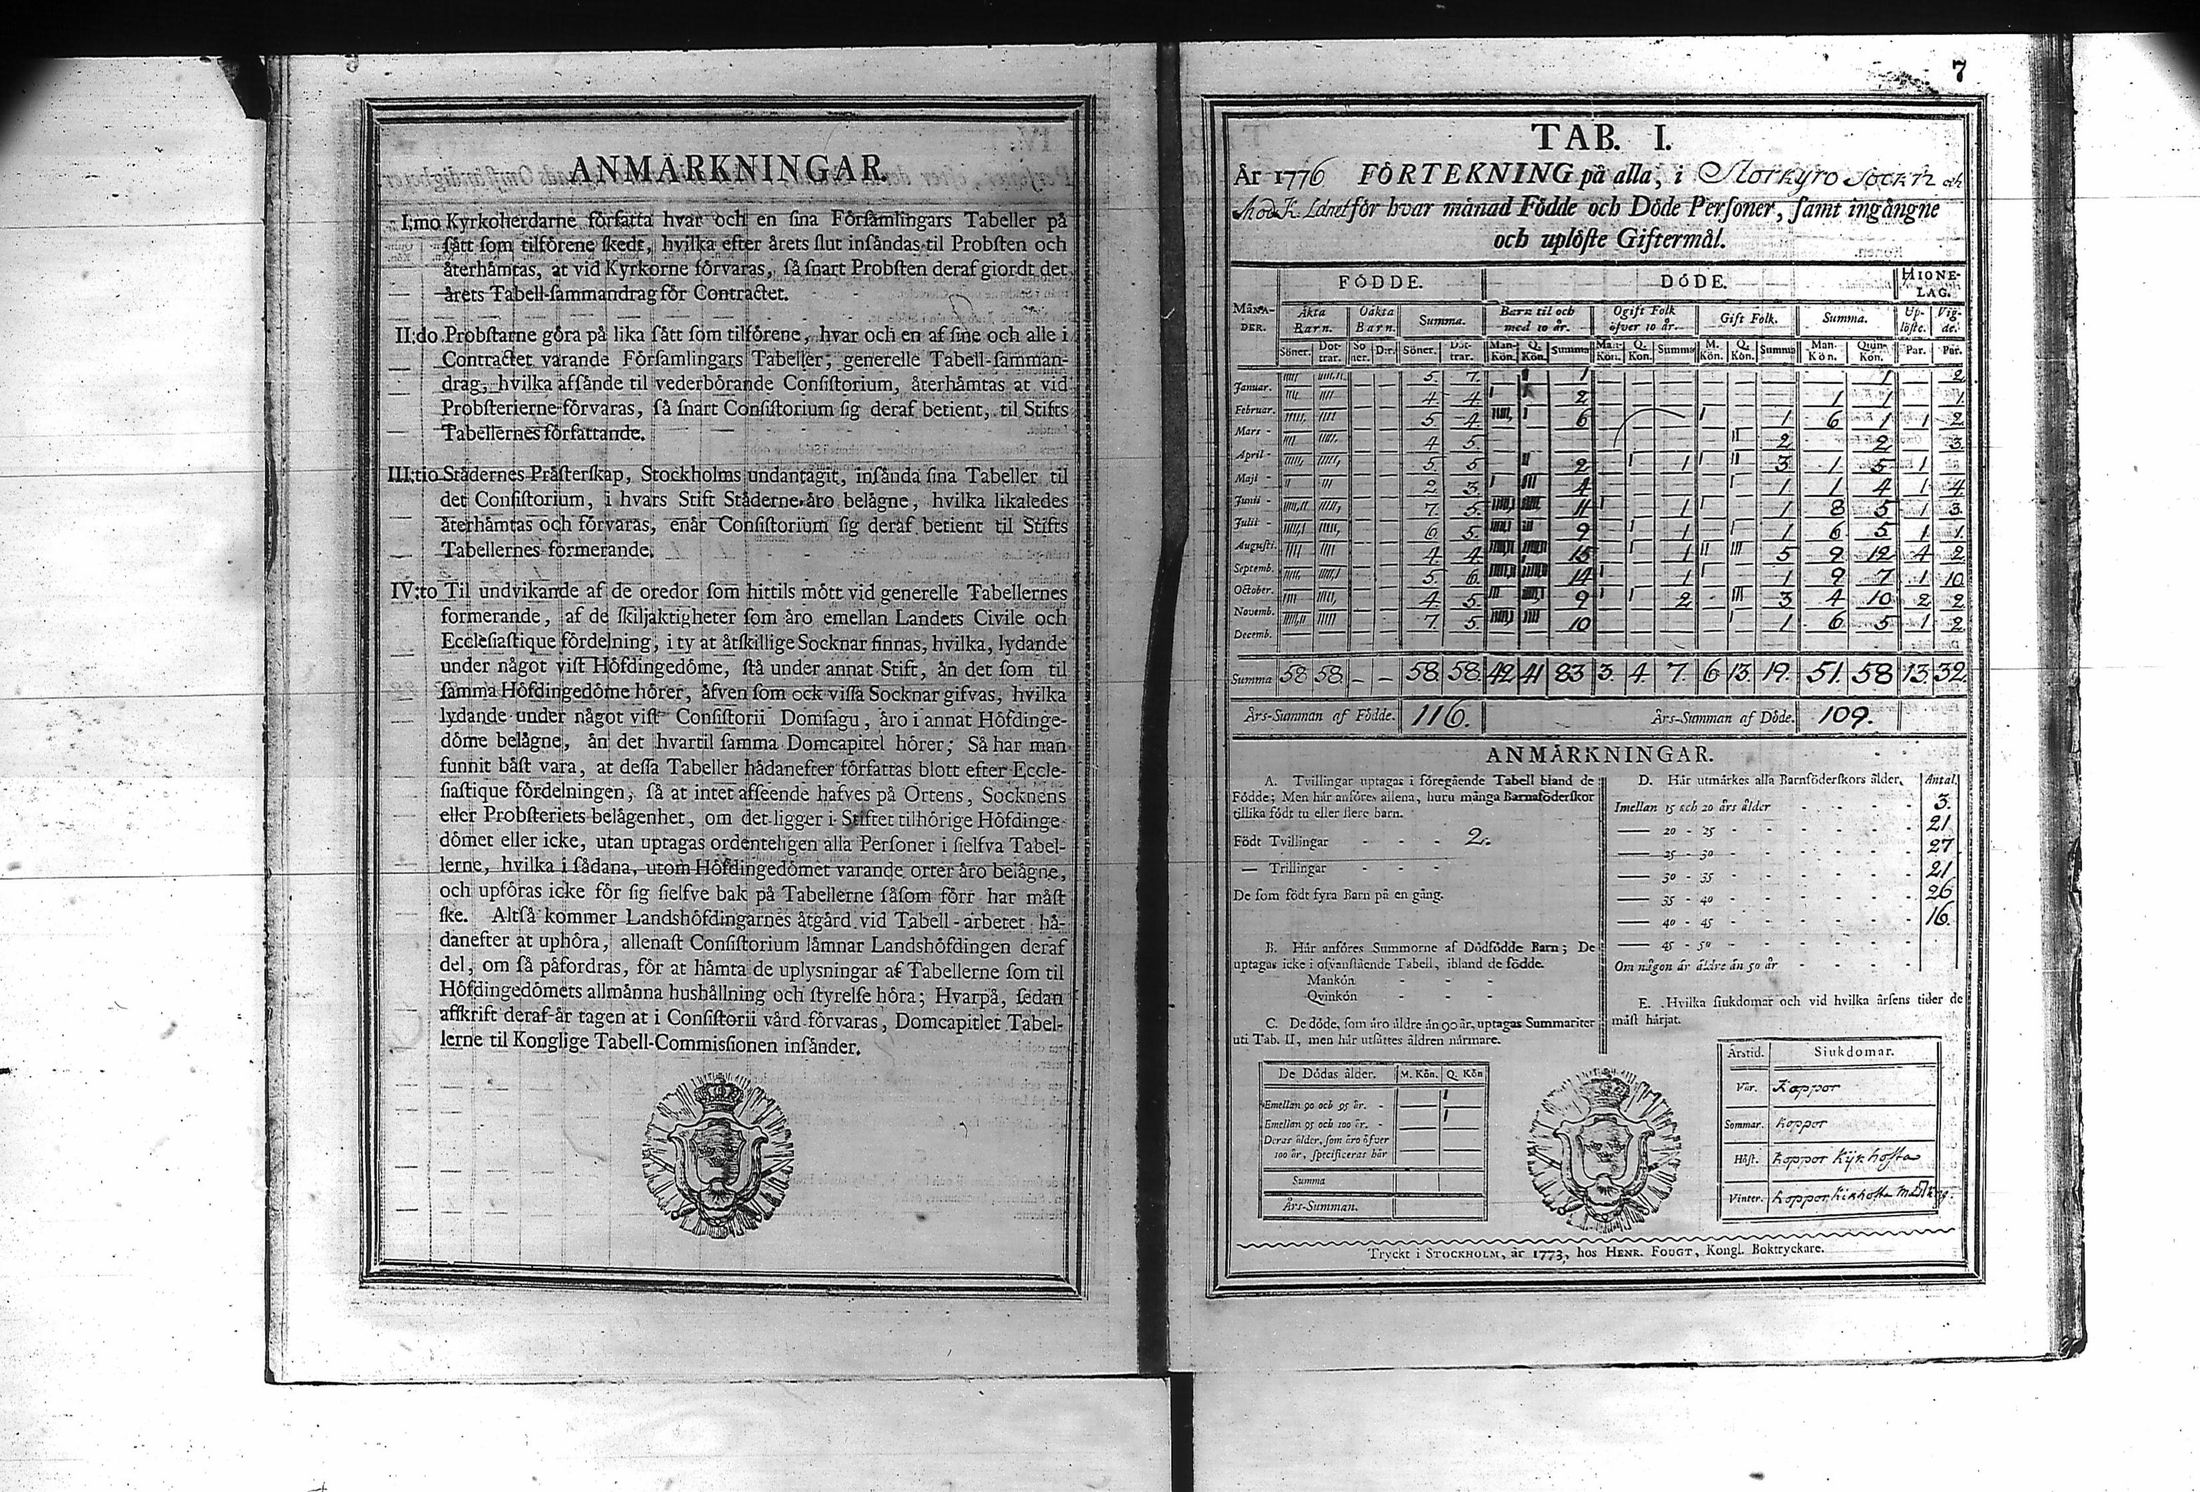 ANMÄRKNINGAR.
I:mo Kyrkoherdarne författa hvar och en sina Församlingars Tabeller på
sått som tilförene skedt, hvilka efter årets slut insåndas til Probsten och
återhämtas, at vid Kyrkorne förvaras, så snart Probsten deraf giordt det
årets Tabell-sammandrag för Contractet.
II:do Probstarne göra på lika sätt som tilförene, hvar och en af sine och alle i
Contractet varande Församlingars Tabeller; generelle Tabell-samman-
drag, hvilka afsånde til vederbörande Consistorium, återhämtas at vid
Probsterierne förvaras, så snart Consistorium sig deraf betient, til Stifts
Tabellernes författande.
III:tio Städernes Prästerskap, Stockholms undantagit, insånda sina Tabeller til
det Consistorium, i hvars Stift Städerne äro belägne, hvilka likaledes
återhämtas och förvaras, enår Consistorium sig deraf betient til Stifts
Tabellernes formerande.
IV:to Til undvikande af de oredor som hittils mött vid generelle Tabellernes
formerande, af de skiljaktigheter som äro emellan Landets Civile och
Ecclesiastique fördelning, i ty at åtskillige Socknar finnas, hvilka, lydande
under något visst Höfdingedöme, stå under annat Stift, än det som til
samma Höfdingedöme hörer, äfven som ock vissa Socknar gifvas, hvilka
lydande under något visst Consistorii Domsagu, äro i annat Höfdinge-
döme belägne, än det hvartil samma Domcapitel hörer; Så har man
funnit bäst vara, at dessa Tabeller hädanefter författas blott efter Eccle-
siastique fördelningen, så at intet afseende hafves på Ortens, Socknens
eller Probsteriets belägenhet, om det ligger i Stiftet tilhörige Höfdinge-
dömet eller icke, utan uptagas ordenteligen alla Personer i sielfva Tabel-
lerne, hvilka i sådana, utom Höfdingedömet varande orter äro belägne,
och upföras icke för sig sielfve bak på Tabellerne såsom förr har måst
ske. Altså kommer Landshöfdingarnes åtgärd vid Tabell-arbetet hä-
danefter at uphöra, allenast Consistorium lämnar Landshöfdingen deraf
del, om så påfordras, för at hämta de uplysningar af Tabellerne som til
Höfdingedömets allmänna hushållning och styrelse höra; Hvarpå, sedan
afskrift deraf är tagen at i Consistorii vård förvaras, Domcapitlet Tabel-
lerne til Konglige Tabell-Commissionen insänder.
7
TAB. I.
År 1776 FÖRTEKNING på alla, i Storkyro Sockn och
för hvar månad Födde och Döde Personer, samt ingångne
och uplöste Giftermål.
MÅNA-DER. FÖDDE. DÖDE. HIONE-LAG.
Äkta Barn. Oäkta Barn. Summa. Barn til och med 10 år. Ogift Folk öfver 10 år. Gift Folk. Summa. Up-löste. Vig-de.
Söner. Dot-trar. So ner. D:r. Söner. Dot-trar. Man-Kön. Q. Kön. Summa Man-Kön. Q. Kön. Summa M. Kön. Q. Kön. Summa Man-Kön. Quin-Kön. Par. Par.
Januar. 5. 7. 1 1 2
Februar. 4 4 2 1 1 1
Mars 5 4 6 1 6 1 1 2
April 4 5 2 2 3
Maji 5 5 2 1 3 1 5 1
Junii 2 3 4 1 1 4 1 4
Julii 7 5 11 1 1 8 5 1 3
Augusti 6 5 9 1 1 6 5 1 1
Septemb. 4 4 15 1 5 9 12 4 2
October. 5 6 14 1 1 9 7 1 10
Novemb. 4 5 9 2 3 4 10 2 2
Decemb. 7 5 10 1 6 5 1 2
Summa 58 58 - - 58 58 42 41 83 3. 4. 7. 6 13. 19. 51. 58 13. 32
Års-Summan af Födde. 116. Års-Summan af Döde. 109.
ANMÄRKNINGAR.
A. Tvillingar uptagas i föregående Tabell bland de
Födde; Men här anföres allena, huru många Barnaföderskor
tillika födt tu eller flere barn.
Födt Tvillingar - - - 2.
— Trillingar - - -
De som födt fyra Barn på en gång.
B. Här anföres Summorne af Dödfödde Barn; De
uptagas icke i ofvanstående Tabell, ibland de födde.
Mankön - - -
Qvinkön - - -
C. De döde, som äro äldre än 90 år, uptagas Summariter
uti Tab. II, men här utsättes åldren närmare.
De Dödas ålder. M. Kön. Q. Kön
Emellan 90 och 95 år. -
Emellan 95 och 100 år. -
Deras ålder, som äro öfver
100 år, specificeras här
Summa
Års-Summan.
D. Här utmärkes alla Barnföderskors ålder. Antal
Imellan 15 och 20 års ålder - 3.
— 20 - 25 - 21
— 25 - 30 - 27
— 30 - 35 - 21
— 35 - 40 - 26
— 40 - 45 - 16.
— 45 - 50 -
Om någon är äldre än 50 år -
E. Hvilka siukdomar och vid hvilka årsens tider de
mäst härjat.
Årstid. Siukdomar.
Vår. Koppor
Sommar. Koppor
Höst. Koppor Kijkhosta
Vinter. Koppor, Kikhosta
Tryckt i STOCKHOLM, år 1773, hos HENR. FOUGT, Kongl. Boktryckare.